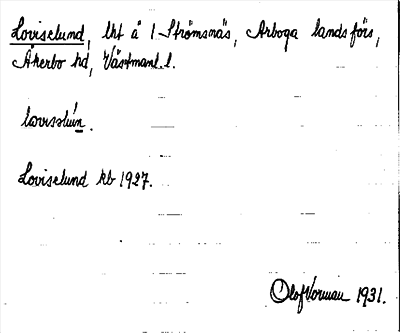 Loviselund, lht å 1 Strömsnäs, Arboga landsförs,
Åkerbo hd, Västmanl. l.
lovisəlún.
Loviselund kb 1927.
Olof Norman 1931.